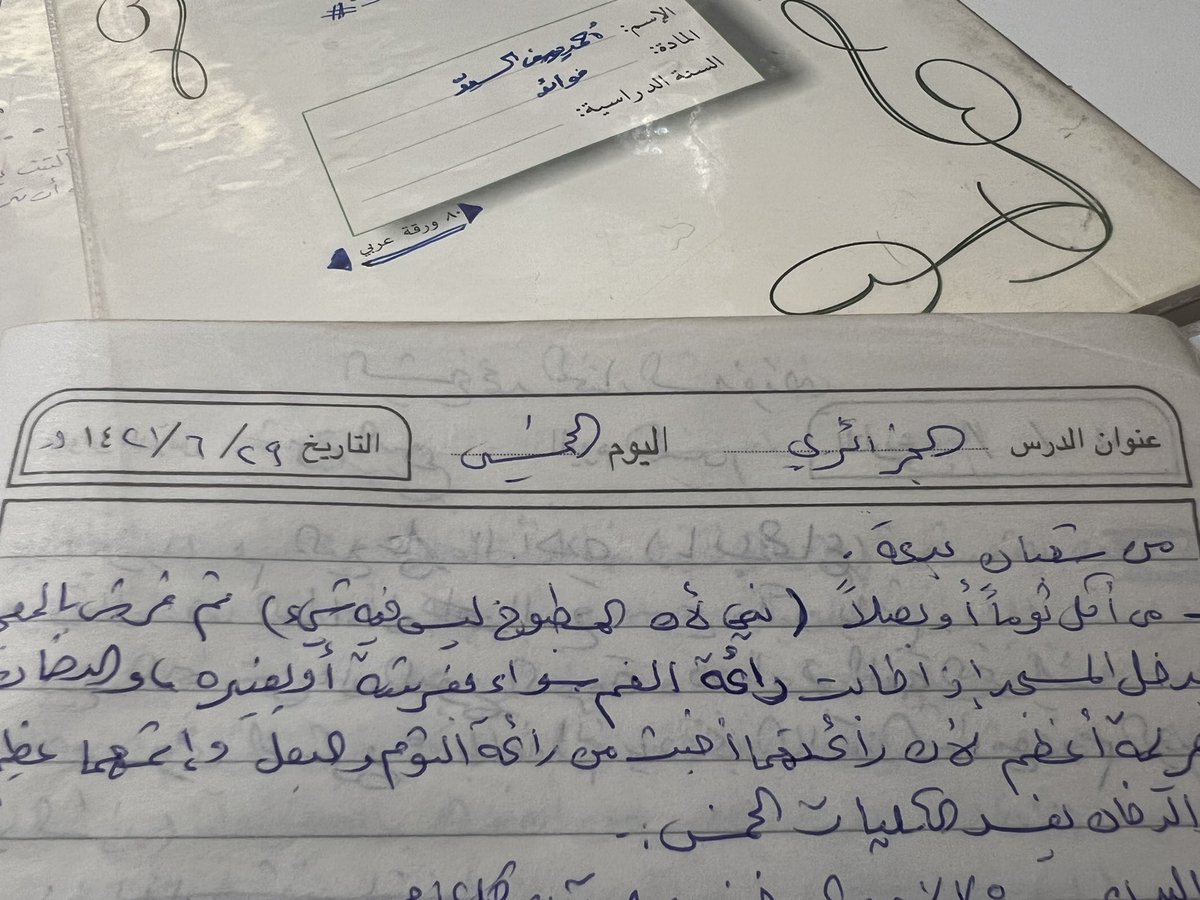 الإسم: أحمد يوسف السيد
المادة: فوائد
السنة الدراسية:
٨٠ ورقة عربي
عنوان الدرس الجزائري اليوم الخميس التاريخ ٢٩/٦/١٤٢١
من شعبان بدعة.
- من أكل ثوماً أو بصلاً (نيء لأن المطبوخ ليس فيه شيء) ثم
المسجد إذا طابت رائحة الفم سواء بفرشة أو بغيره
أعظم لأن رائحتهما أخبث من رائحة الثوم والبصل وإثمهما
الدخان يفسد الكليات الخمس:-